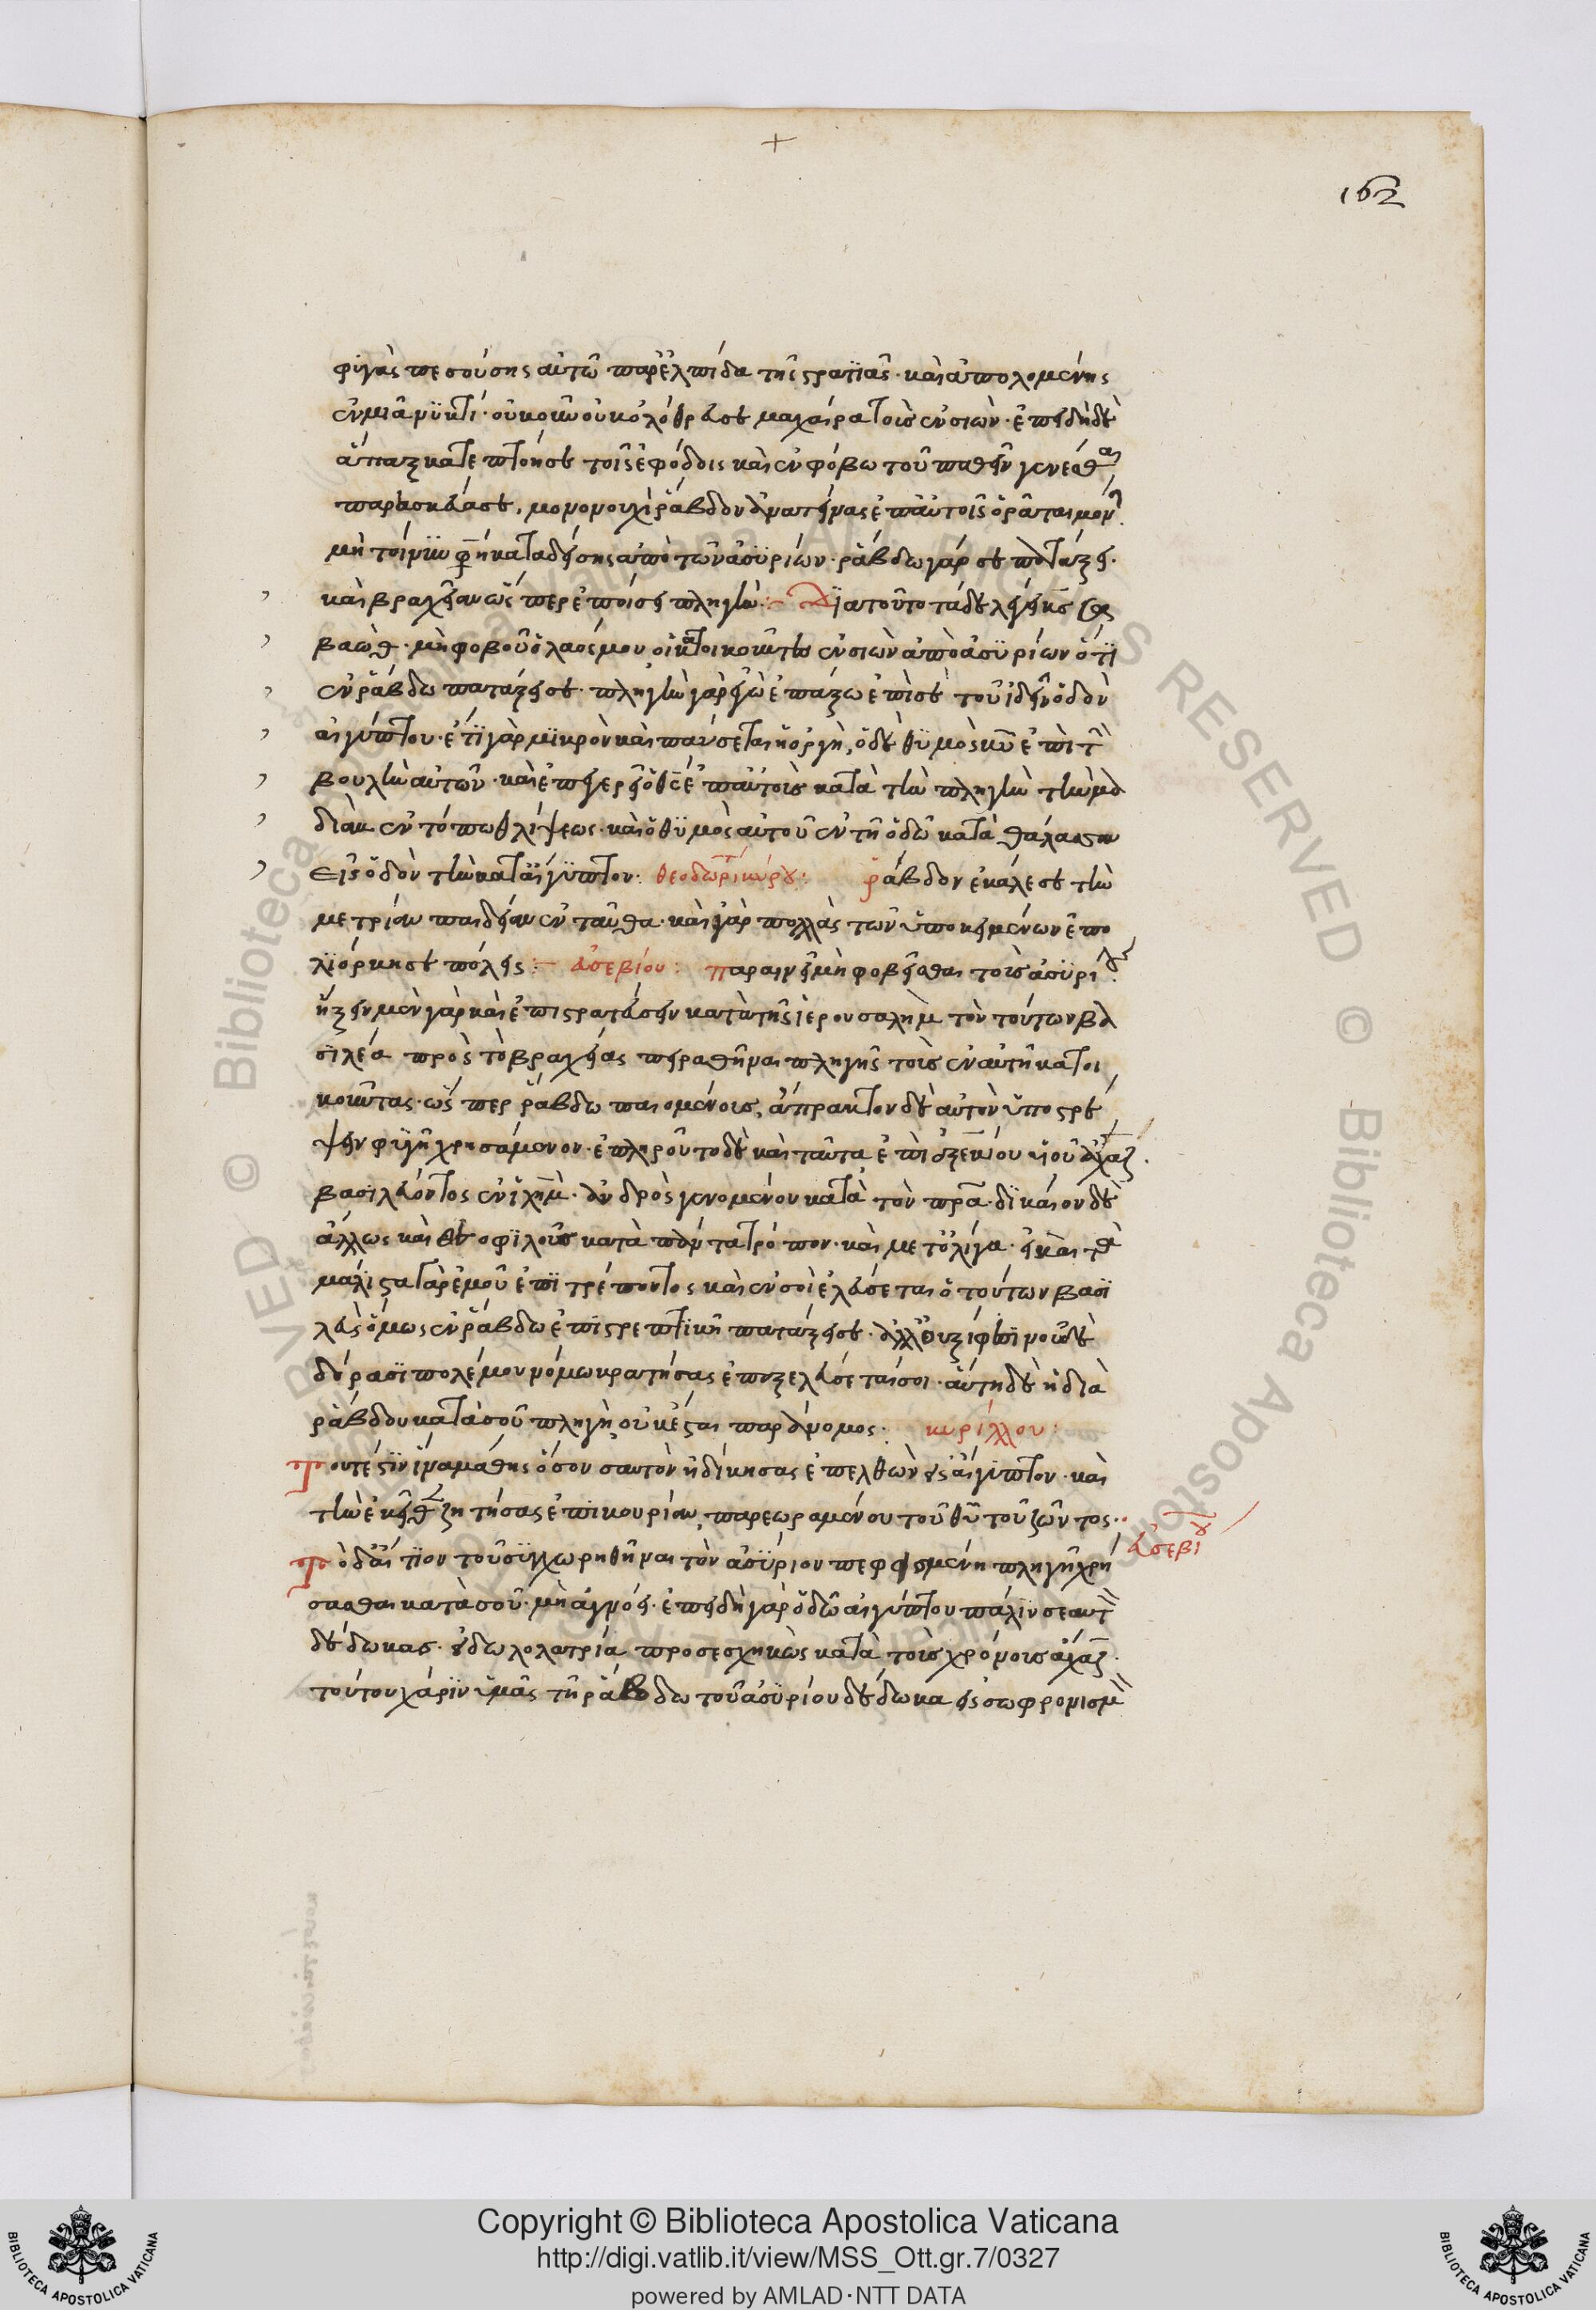 162
φυγὰς πεσούσης αὐτῶ παρ' ἐλπίδα τῆς στρατιᾶς· καὶ ἀπολομένης
ἐν μιᾶ νυκτί· οὐκοῦν οὐκ ὀλόθρευσε μαχαίρα τοὺς ἐν σιών· ἐπειδὴ δὲ
ἅπαξ κατεπτόησε τοῖς ἐφόδοις καὶ ἐν φόβω τοῦ παθεῖν γενέσθαι
παρεσκεύασε, μονονουχὶ ῥάβδον ἀνατείνας ἐπ' αὐτοῖς ὁρᾶται μόν
μὴ τοίνυν καταδείσης ἀπὸ τῶν ἀσυρίων· ῥάβδω γάρ σε πατάξει·
καὶ βραχεῖαν ὥσπερ ἐποίσει πληγήν: Διατοῦτο τάδε λέγει κς σα
βαώθ· μὴ φοβοῦ ὁ λαός μου οἱ κατοικοῦντες ἐν σιὼν ἀπὸ ἀσυρίων ὅτι
ἐν ῥάβδω πατάξει σε· πληγὴν γὰρ ἐγὼ ἐπάξω ἐπὶ σὲ τοῦ ἰδεῖν ὁδὸν
αἰγύπτου· ἔτι γὰρ μικρὸν καὶ παύσεται ἡ ὀργὴ, ὁ δὲ θυμὸς κυ ἐπὶ τὴν
βουλὴν αὐτῶν· καὶ ἐπεγερεῖ ὁ θς ἐπ' αὐτοὺς κατὰ τὴν πληγὴν τὴν μα
διὰμ ἐν τόπω θλίψεως· καὶ ὁ θυμὸς αὐτοῦ ἐν τῆ ὁδῶ κατὰ θάλασσαν
Εἰς ὁδὸν τὴν κατ' αἴγυπτον: θεοδωρίτ κύρου: ῥάβδον ἐκάλεσε τὴν
μετρίαν παιδείαν ἐν ταῦθα· καὶ γὰρ πολλὰς τῶν ὑποκειμένων ἐπο
λιόρκησε πόλεις: εὐσεβίου: παραινεῖ μὴ φοβεῖσθαι τοὺς ἀσυρί
ἥξειν μὲν γὰρ καὶ ἐπιστρατεύσειν κατὰ τῆς ἱερουσαλὴμ τὸν τούτων βα
σιλέα πρὸς τὸ βραχείας πειραθῆναι πληγῆς τοὺς ἐν αὐτῆ κατοι
κοῦντας· ὥσπερ ῥάβδω παιομένους, ἄπρακτον δὲ αὐτὸν ὑποστρέ
ψειν φυγῆ χρησάμενον· ἐπληροῦτο δὲ καὶ ταῦτα ἐπὶ ἐζεκίου υἱοῦ ἄχαζ·
βασιλεύοντος ἐν ἰλημ· ἀνδρὸς γενομένου κατὰ τὸν πρα· δικαίου δὲ
ἄλλως καὶ θεοφιλοῦς κατὰ πάντα τρόπον· καὶ μετ' ὀλίγα· εἰ καὶ τὰ
μάλιστα γὰρ ἐμοῦ ἐπιτρέποντος καὶ ἐν σοὶ ἐλεύσεται ὁ τούτων βασι
λεὺς ὅμως ἐν ῥάβδω ἐπιστρεπτικῆ πατάξει σε· ἀλλ' οὐ ξίφει μοὐδὲ
δόρασι πολέμου νόμω κρατήσας ἐπεξελεύσεταί σοι· αὕτη δὲ ἡ διὰ
ῥάβδου κατὰ σοῦ πληγὴ, οὐκ ἔσται παράνομος: κυρίλλου:
τουτέστιν ἵνα μάθης ὅσον σαυτὸν ἠδίκησας ἐπελθὼν εἰς αἴγυπτον· καὶ
τὴν ἐκεῖθεν ζητήσας ἐπικουρίαν, παρεωραμένου τοῦ θυ τοῦ ζῶντος:
εὐσεβίου
τὸ δ' αἴτιον τοῦ συγχωρηθῆναι τὸν ἀσύριον πεφεισμένη πληγῆ χρή
σασθαι κατὰ σοῦ· μὴ ἀγνόει· ἐπειδὴ γὰρ ὁδῶ αἰγύπτου πάλιν σεαυτ
δέδωκας· εἰδωλολατρία προσεσχηκὼς κατὰ τοὺς χρόνους ἄχαζ·
τούτου χάριν ὑμᾶς τῆ ῥάβδω τοῦ ἀσυρίου δέδωκα εἰς σωφρονισμ
Copyright © Biblioteca Apostolica Vaticana
http://digi.vatlib.it/view/MSS_Ott.gr.7/0327
powered by AMLAD·NTT DATA